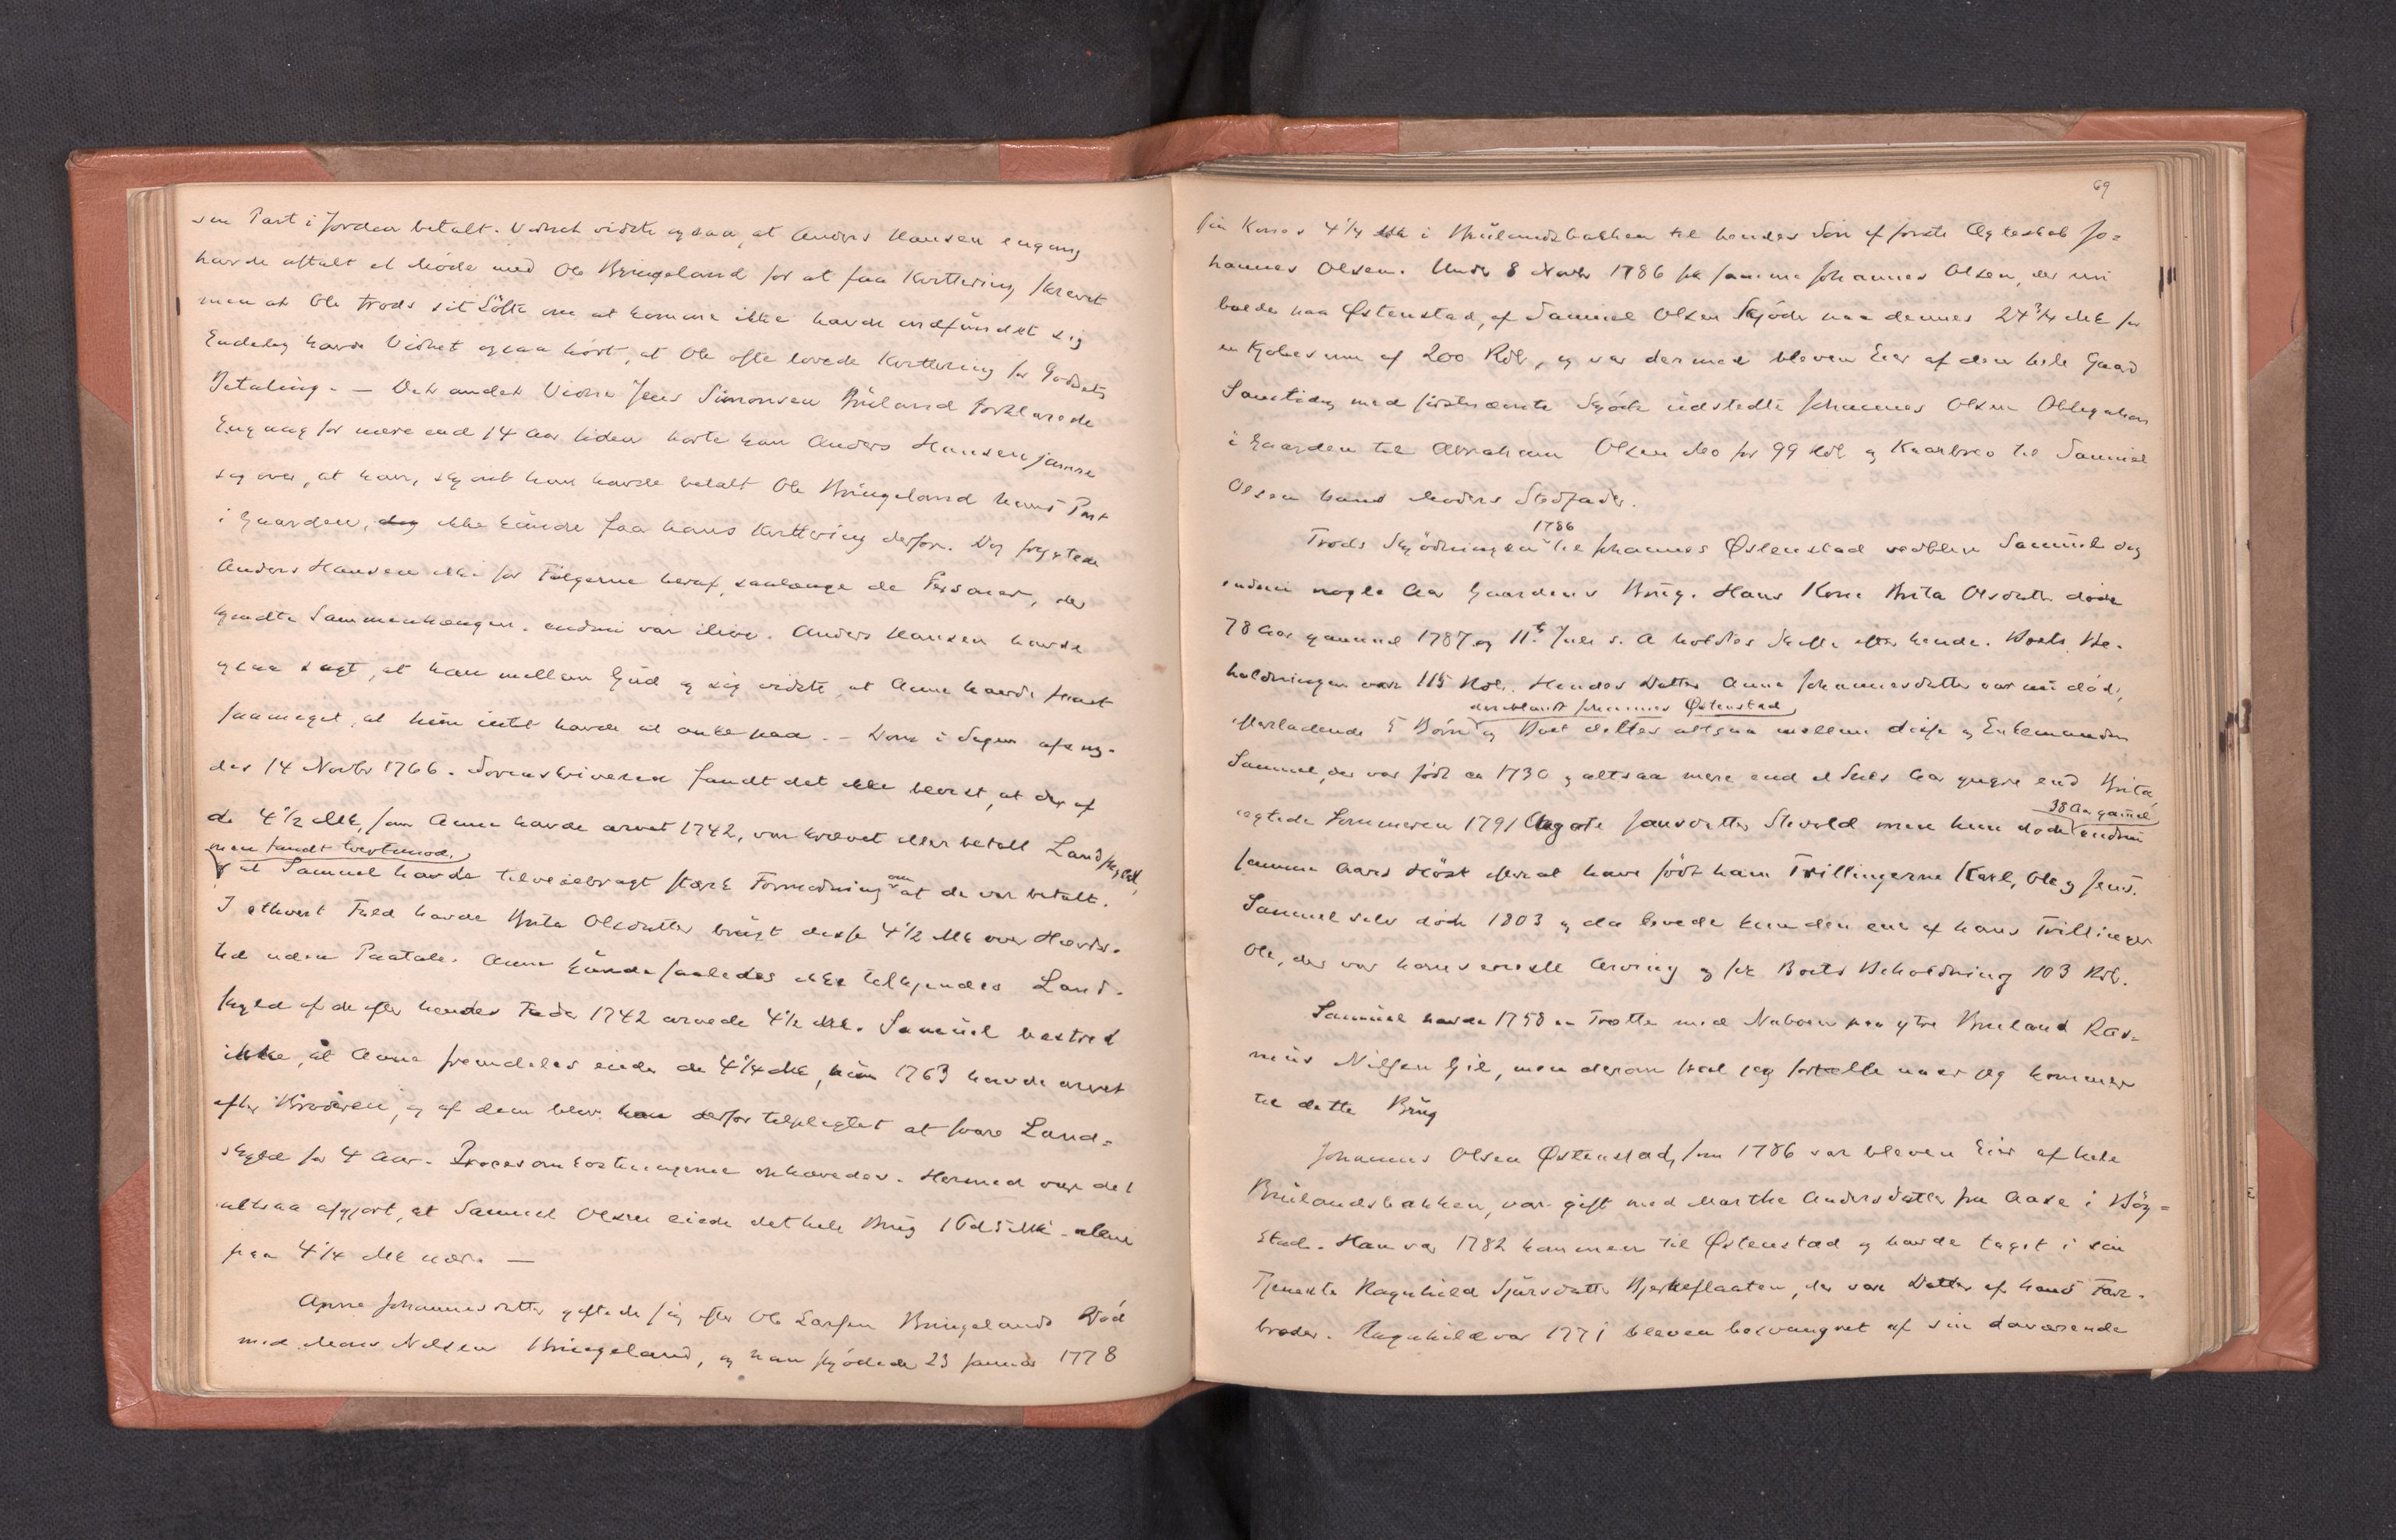 sin Part i Jorden betalt. Vidnet vidste ogsaa, at Anders Hansen engang
havde aftalt et Møde med Ole Bringeland for at faa Kvittering skrevet
men at Ole trods sit Løfte om at komme ikke havde indfundet sig
Endelig havde Vidnet ogsaa hørt, at Ole ofte lovede Kvittering for Godsets
Betaling. — Det andet Vidne Jens Simonsen Bruland forklarede
Engang for mere end 14 Aar siden hørte han Anders Hansen jamre
sig over, at han, skjønt han havde betalt Ole Bringeland hans Part
i Gaarden, dog ikke kunde faa hans Kvittering derfor. Dog frygtede
Anders Hansen ikke for Følgerne heraf, saalænge de Personer, der
kjendte Sammenhængen, endnu var ilive. Anders Hansen havde
ogsaa sagt, at han mellem Gud og sig vidste, at Anne havde faaet
saameget, at hun intet havde at anke paa. — Dom i Sagen afsag-
des 14 Novbr 1766. Sorenskriveren fandt det ikke bevist, at der af
de 4½ Mk, som Anne havde arvet 1742, var krævet eller betalt Landskyld,
men fandt tvertimod,
at Samuel havde tilveiebragt stærk Formodning om at de var betalt.
I ethvert Fald havde Brita Olsdatter brugt disse 4½ Mk over Hævds-
tid uden Paatale. Anne kunde saaledes ikke tilkjendes Land-
skyld af de efter hendes Fader 1742 arvede 4½ Mk. Samuel bestred
ikke, at Anne fremdeles eiede de 4¼ Mk, hun 1763 havde arvet
efter Broderen, og af dem blev han derfor tilpligtet at svare Land-
skyld for 4 Aar. Procesomkostningerne ophævedes. Hermed var det
altsaa afgjort, at Samuel Olsen eiede det hele Brug 1 Pd 5 Mk. alene
paa 4¼ Mk nær. —
Anne Johannesdatter giftede sig efter Ole Larsen Bringelands Død
med Mons Nilsen Bringeland, og han skjødede 23 Januar 1778
69
sin Kones 4¼ Mk i Brulandsbakken til hendes Søn af første Ægteskab Jo-
hannes Olsen. Under 8 Novbr 1786 fik samme Johannes Olsen, der nu
boede paa Østenstad, af Samuel Olsen Skjøde paa dennes 24¾ Mk for
en Kjøbesum af 200 Rdl, og var dermed bleven Eier af den hele Gaard
Samtidig med sidstnævnte Skjøde udstedte Johannes Olsen Obligation
i Gaarden til Abraham Olsen Mo for 99 Rdl og Kaarbrev til Samuel
Olsen hans Moders Stedfader.
1786
Trods Skjødningen til Johannes Østenstad vedblev Samuel dog
endnu nogle Aar Gaardens Brug. Hans Kone Brita Olsdatter døde
78 Aar gammel 1787 og 11te Juli s. A holdtes Skifte efter hende. Boets Be-
holdningen var 115 Rdl. Hendes Datter Anne Johannesdatter var nu død,
deriblandt Johannes Østenstad
efterladende 5 Børn og Boet deltes altsaa mellem disse og Enkemanden
Samuel, der var født ca 1730 og altsaa mere end et Snes Aar yngre end Brita
38 Aar gammel
ægtede Sommeren 1791 Agate Jansdatter Stevold men hun døde endnu
samme Aars Høst efterat have født ham Trillingerne Karl, Ole og Jens.
Samuel selv døde 1803 og da levede kun den ene af hans Trillinger
Ole, der var hans eneste Arving og fik Boets Beholdning 103 Rdl.
Samuel havde 1758 en Trætte med Naboen paa ytre Bruland Ras-
mus Nilsen Gil, men derom skal jeg fortælle naar jeg kommer
til dette Brug
Johannes Olsen Østenstad, som 1786 var bleven Eier af hele
Brulandsbakken, var gift med Marthe Andersdatter fra Aase i Høy-
stad. Han var 1782 kommen til Østenstad og havde taget i sin
Tjeneste Ragnhild Sjursdatter Bjerkeflaaten, der var Datter af hans Far-
broder. Ragnhild var 1771 bleven besvangret af sin daværende